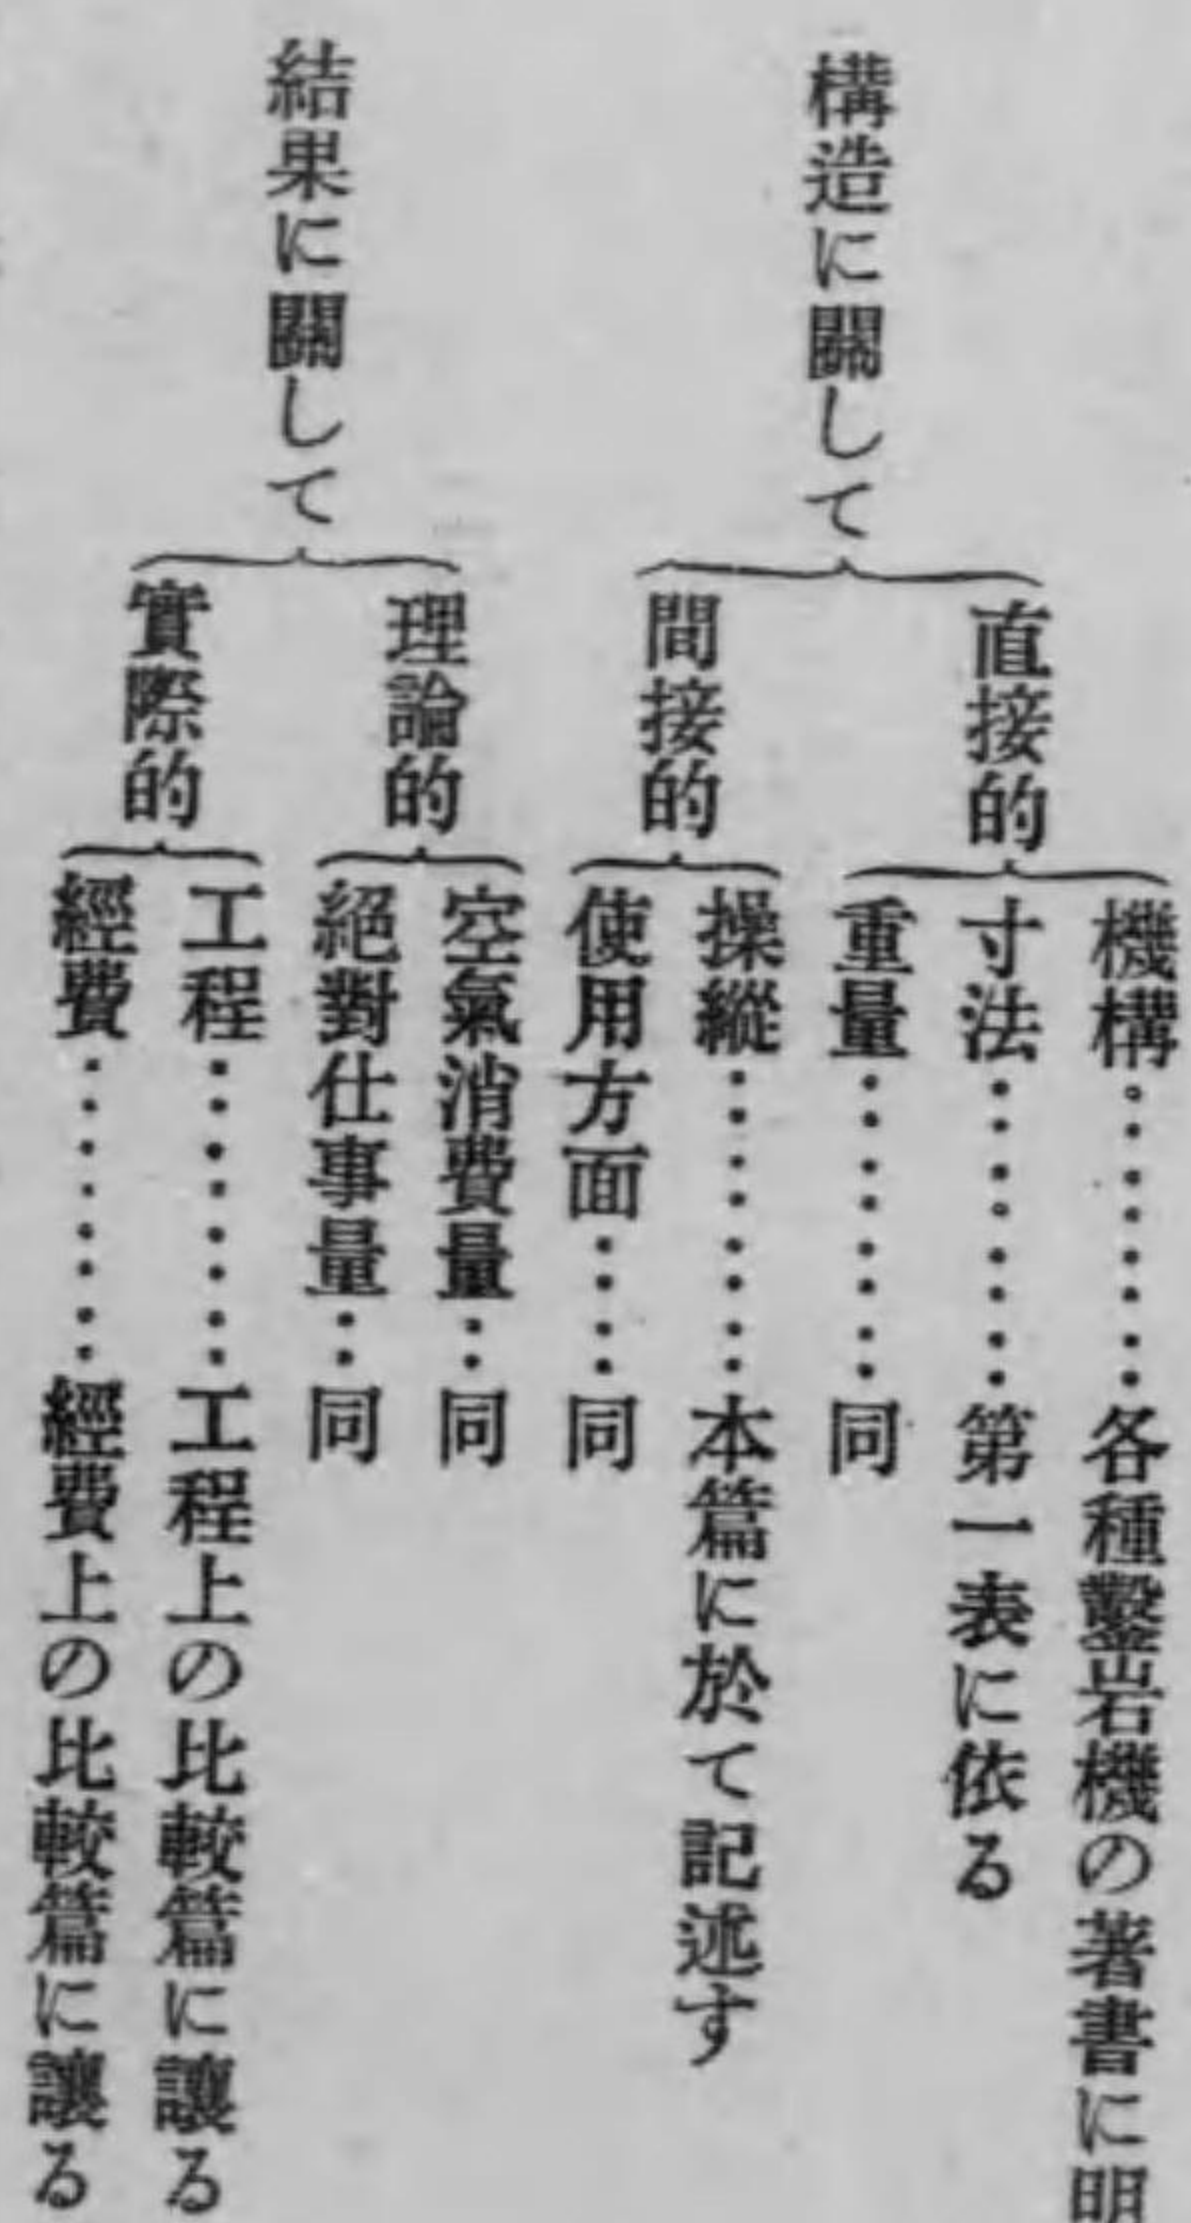 構造に關して
直接的
機構。………各種鑿岩機の著書に明
寸法………第一表に依る
重量………同
間接的
操縱………本篇に於て記述す
使用方面……同
結果に關して
理論的
空氣消費量…同
絕對仕事量…同
實際的
工程………工程上の比較篇に讓る
經費………經費上の比較篇に讓る